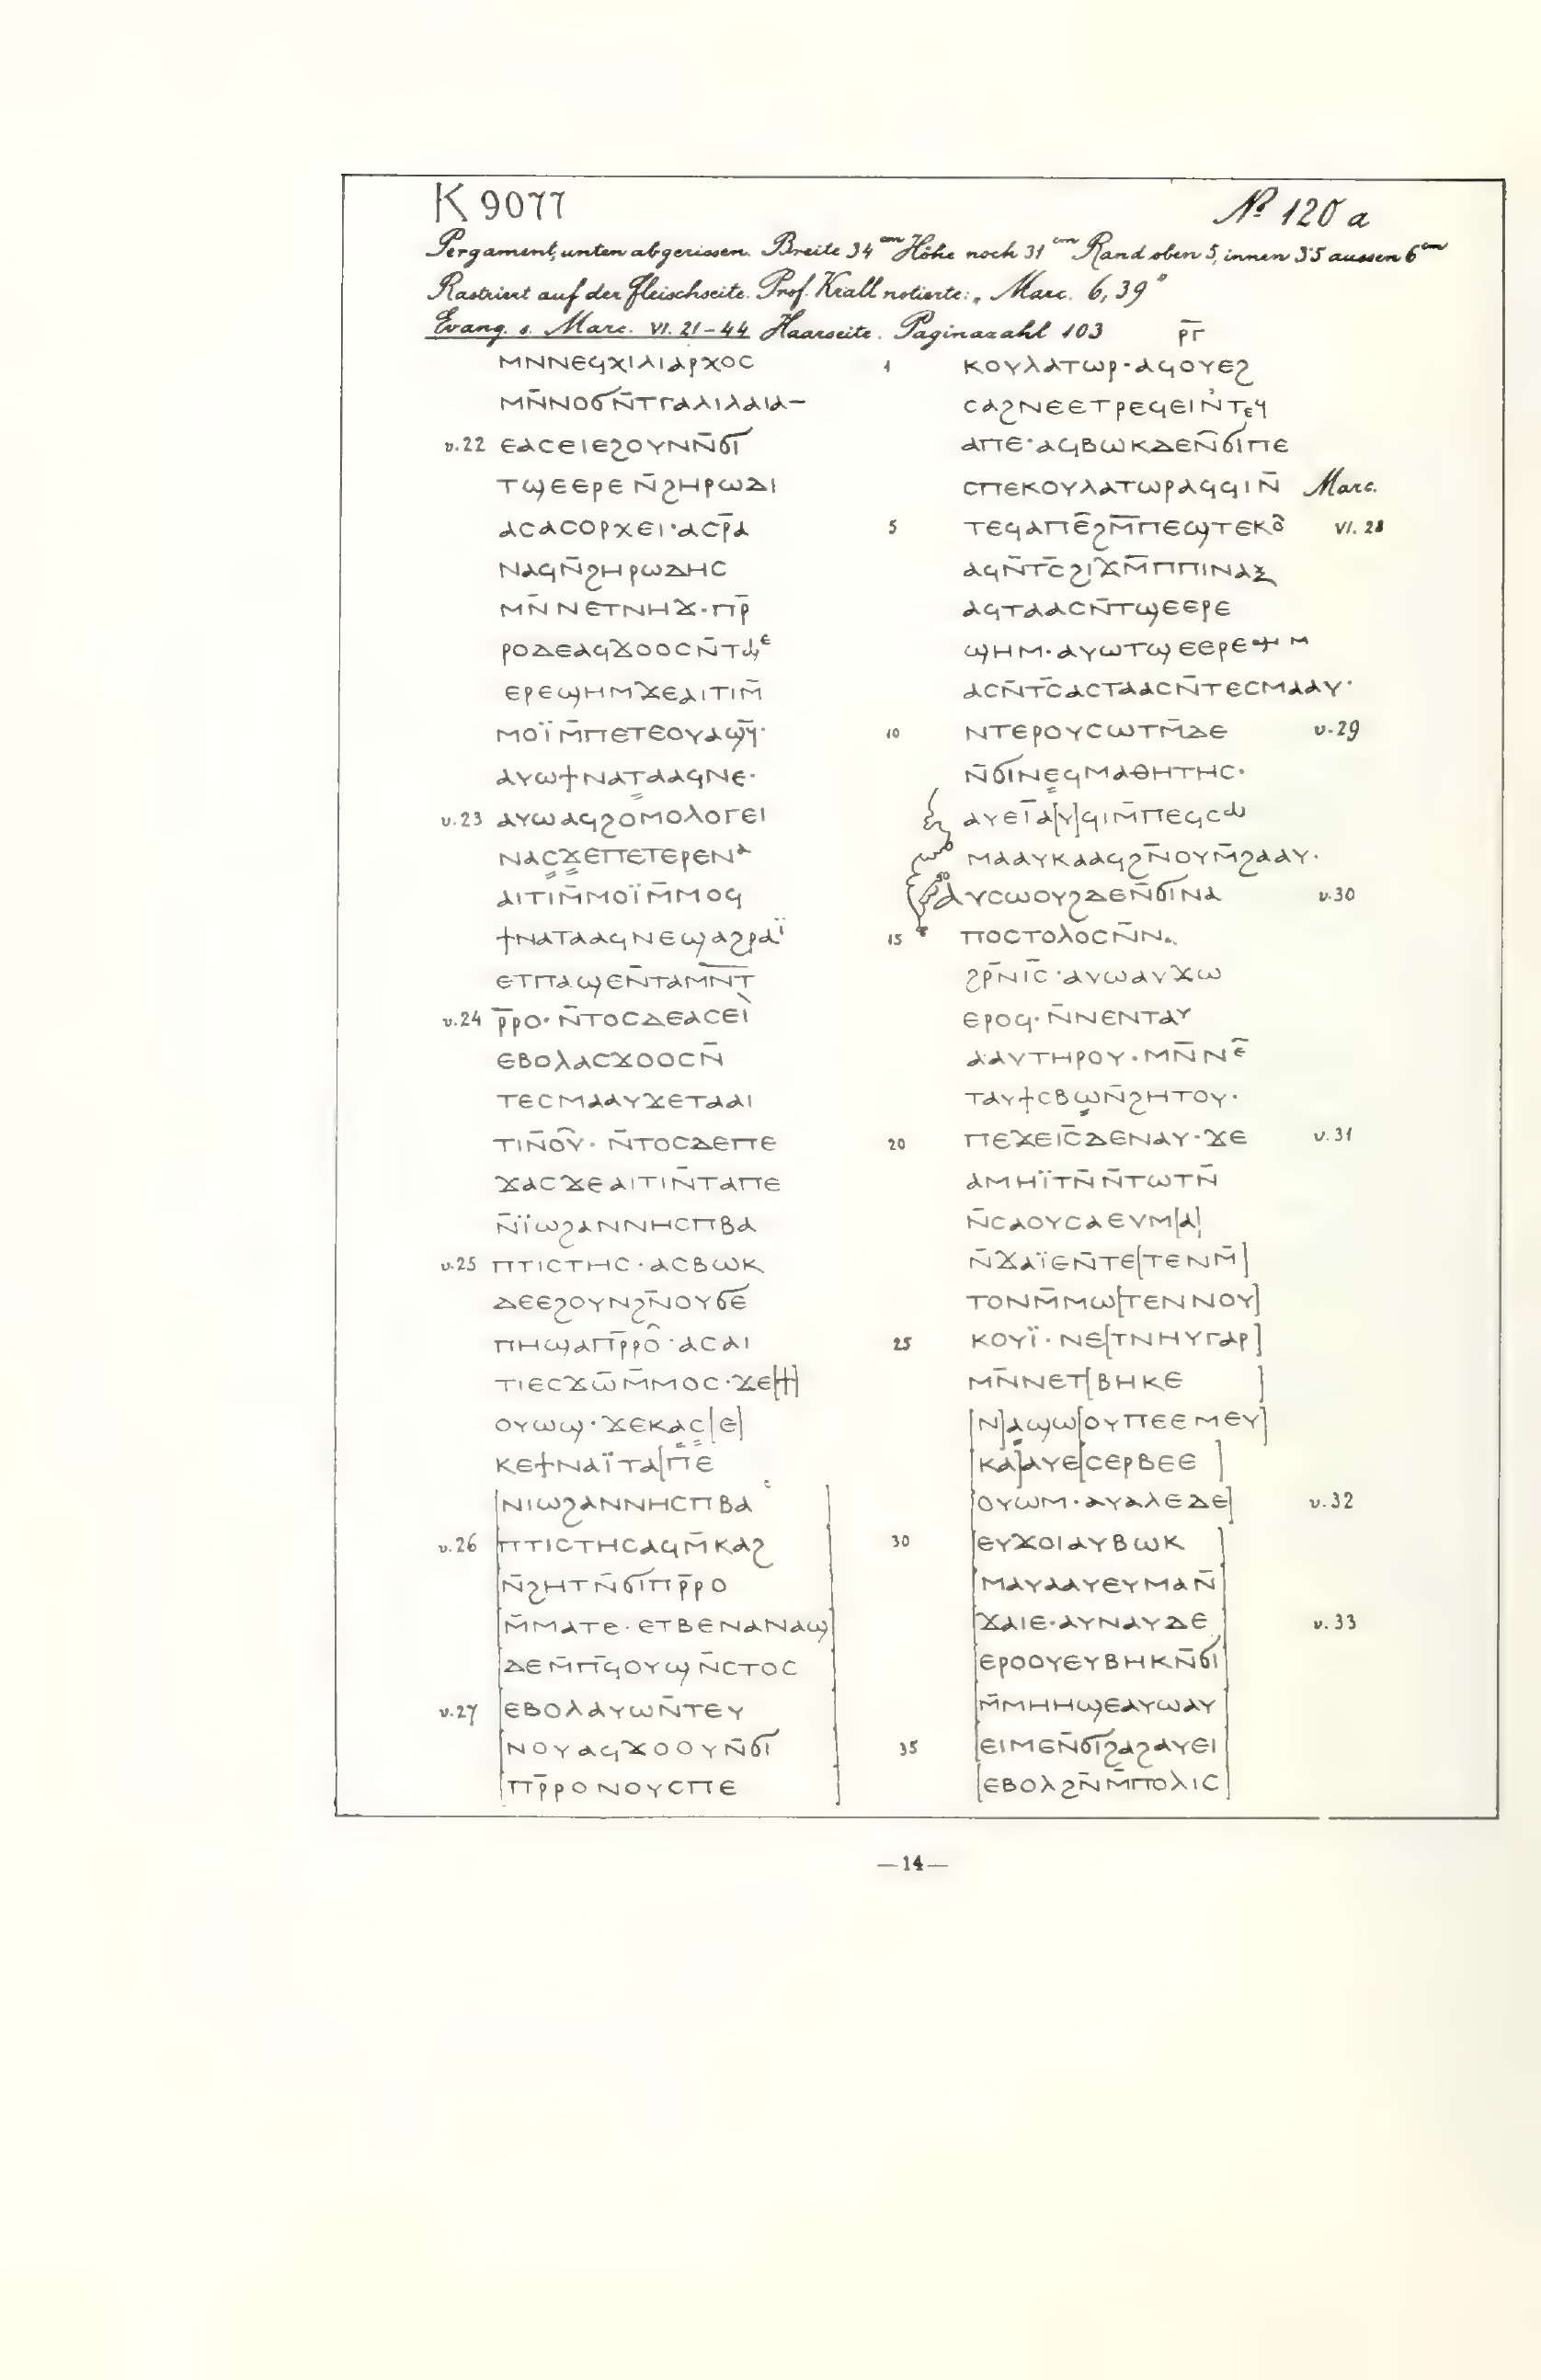 K 9077
№ 120 a
Pergament, unten abgerissen. Breite 34 cm Höhe noch 31 cm Rand oben 5, innen 3·5 aussen 6 cm
Rastriert auf der Fleischseite. Prof. Krall notierte: „Marc. 6, 39"
Evang. s. Marc. VI. 21–44 Haarseite. Paginazahl 103 ⲣ̅ⲅ̅
ⲙⲛⲛⲉϥⲭⲓⲗⲓⲁⲣⲭⲟⲥ
ⲙⲛ̄ⲛⲟϭⲛ̄ⲧⲅⲁⲗⲓⲗⲁⲓⲁ–
v.22 ⲉⲁⲥⲉⲓⲉϩⲟⲩⲛⲛ̄ϭⲓ
ⲧϣⲉⲉⲣⲉⲛ̄ϩⲏⲣⲱⲇⲓ
ⲁⲥⲁⲥⲟⲣⲭⲉⲓ·ⲁⲥⲣ̄ⲁ
ⲛⲁϥⲛ̄ϩⲏⲣⲱⲇⲏⲥ
ⲙⲛ̄ⲛⲉⲧⲛⲏϫ·ⲡⲣ̄
ⲣⲟⲇⲉⲁϥϫⲟⲟⲥⲛ̄ⲧϣⲉ
ⲉⲣⲉϣⲏⲙϫⲉⲁⲓⲧⲓⲙ̄
ⲙⲟⲓ̈ⲙ̄ⲡⲉⲧⲉⲟⲩⲁϣϥ̄·
ⲁⲩⲱϯⲛⲁⲧⲁⲁϥⲛⲉ·
v.23 ⲁⲩⲱⲁϥϩⲟⲙⲟⲗⲟⲅⲉⲓ
ⲛⲁⲥϫⲉⲡⲉⲧⲉⲣⲉⲛⲁ
ⲁⲓⲧⲓⲙ̄ⲙⲟⲓ̈ⲙ̄ⲙⲟϥ
ϯⲛⲁⲧⲁⲁϥⲛⲉϣⲁϩⲣⲁⲓ̈
ⲉⲧⲡⲁϣⲉⲛ̄ⲧⲁⲙⲛ̄ⲧ
v.24 ⲣ̄ⲣⲟ·ⲛ̄ⲧⲟⲥⲇⲉⲁⲥⲉⲓ̀
ⲉⲃⲟⲗⲁⲥϫⲟⲟⲥⲛ̄
ⲧⲉⲥⲙⲁⲁⲩϫⲉⲧⲁⲁⲓ
ⲧⲓⲛ̄ⲟⲩ̂·ⲛ̄ⲧⲟⲥⲇⲉⲡⲉ
ϫⲁⲥϫⲉⲁⲓⲧⲓⲛ̄ⲧⲁⲡⲉ
ⲛ̄ⲓ̈ⲱϩⲁⲛⲛⲏⲥⲡⲃⲁ
v.25 ⲡⲧⲓⲥⲧⲏⲥ·ⲁⲥⲃⲱⲕ
ⲇⲉⲉϩⲟⲩⲛϩⲛ̄ⲟⲩϭⲉ
ⲡⲏϣⲁⲡⲣ̄ⲣⲟ̂·ⲁⲥⲁⲓ
ⲧⲓⲉⲥϫⲱ̄ⲙ̄ⲙⲟⲥ·ϫⲉ[ϯ]
ⲟⲩⲱϣ·ϫⲉⲕⲁⲥ[ⲉ]
ⲕⲉϯⲛⲁⲓ̈ⲧⲁ[ⲡⲉ
[ⲛⲓⲱϩⲁⲛⲛⲏⲥⲡⲃⲁ ]
v.26 [ⲡⲧⲓⲥⲧⲏⲥⲁϥⲙ̄ⲕⲁϩ
[ⲛ̄ϩⲏⲧⲛ̄ϭⲓⲡⲣ̄ⲣⲟ
[ⲙ̄ⲙⲁⲧⲉ·ⲉⲧⲃⲉⲛⲁⲛⲁϣ]
[ⲇⲉⲙ̄ⲡϥ̄ⲟⲩⲱϣⲛ̄ⲥⲧⲟⲥ
v.27 [ⲉⲃⲟⲗⲁⲩⲱⲛ̄ⲧⲉⲩ
[ⲛⲟⲩⲁϥϫⲟⲟⲩⲛ̄ϭⲓ
[ⲡⲣ̄ⲣⲟⲛⲟⲩⲥⲡⲉ ]
1 ⲕⲟⲩⲗⲁⲧⲱⲣ·ⲁϥⲟⲩⲉϩ
ⲥⲁϩⲛⲉⲉⲧⲣⲉϥⲉⲓⲛ̀ⲧⲉϥ
ⲁⲡⲉ·ⲁϥⲃⲱⲕⲇⲉⲛ̄ϭⲓⲡⲉ
ⲥⲡⲉⲕⲟⲩⲗⲁⲧⲱⲣⲁϥϥⲓⲛ̄ Marc.
5 ⲧⲉϥⲁⲡⲉ̂ϩⲙ̄ⲡⲉϣⲧⲉⲕⲟ̂ VI. 28
ⲁϥⲛ̄ⲧⲥ̄ϩⲓϫⲙ̄ⲡⲡⲓⲛⲁⲝ
ⲁϥⲧⲁⲁⲥⲛ̄ⲧϣⲉⲉⲣⲉ
ϣⲏⲙ·ⲁⲩⲱⲧϣⲉⲉⲣⲉϣⲏⲙ
ⲁⲥⲛ̄ⲧⲥ̄ⲁⲥⲧⲁⲁⲥⲛ̄ⲧⲉⲥⲙⲁⲁⲩ·
10 ⲛⲧⲉⲣⲟⲩⲥⲱⲧⲙ̄ⲇⲉ v.29
ⲛ̄ϭⲓⲛⲉϥⲙⲁⲑⲏⲧⲏⲥ·
ⲁⲩⲉⲓ̄ⲁ[ⲩ]ϥⲓⲙ̄ⲡⲉϥⲥⲱ
ⲙⲁⲁⲩⲕⲁⲁϥϩⲛ̄ⲟⲩⲙ̄ϩⲁⲁⲩ·
ⲁⲩⲥⲱⲟⲩϩⲇⲉⲛ̄ϭⲓⲛⲁ v.30
15 ⲡⲟⲥⲧⲟⲗⲟⲥⲛ̄ⲛ
ϩⲣ̄ⲛⲓ̄ⲥ̄·ⲁⲩⲱⲁⲩϫⲱ
ⲉⲣⲟϥ·ⲛ̄ⲛⲉⲛⲧⲁⲩ
ⲁⲁⲩⲧⲏⲣⲟⲩ·ⲙⲛ̄ⲛⲉ̄
ⲧⲁⲩϯⲥⲃⲱⲛ̄ϩⲏⲧⲟⲩ·
20 ⲡⲉϫⲉⲓⲥ̄ⲇⲉⲛⲁⲩ·ϫⲉ v.31
ⲁⲙⲏⲓ̈ⲧⲛ̄ⲛ̄ⲧⲱⲧⲛ̄
ⲛ̄ⲥⲁⲟⲩⲥⲁⲉⲩⲙ[ⲁ]
ⲛ̄ϫⲁⲓ̈ⲉⲛ̄ⲧⲉ[ⲧⲉⲛⲙ̄]
ⲧⲟⲛⲙ̄ⲙⲱ[ⲧⲉⲛⲛⲟⲩ]
25 ⲕⲟⲩⲓ̈·ⲛⲉ[ⲧⲛⲏⲩⲅⲁⲣ]
ⲙⲛ̄ⲛⲉⲧ[ⲃⲏⲕⲉ ]
[ⲛ]ⲁϣⲱ[ⲟⲩⲡⲉⲉⲙⲉⲩ]
[ⲕⲁ]ⲁⲩⲉ[ⲥⲉⲣⲃⲉⲉ ]
[ⲟⲩⲱⲙ·ⲁⲩⲁⲗⲉⲇⲉ] v.32
30 [ⲉⲩϫⲟⲓⲁⲩⲃⲱⲕ ]
[ⲙⲁⲩⲁⲁⲩⲉⲩⲙⲁⲛ̄]
[ϫⲁⲓⲉ·ⲁⲩⲛⲁⲩⲇⲉ ] v.33
[ⲉⲣⲟⲟⲩⲉⲩⲃⲏⲕⲛ̄ϭⲓ]
[ⲙ̄ⲙⲏⲏϣⲉⲁⲩⲱⲁⲩ]
35 [ⲉⲓⲙⲉⲛ̄ϭⲓϩⲁϩⲁⲩⲉⲓ]
[ⲉⲃⲟⲗϩⲛ̄ⲙ̄ⲡⲟⲗⲓⲥ]
—14—